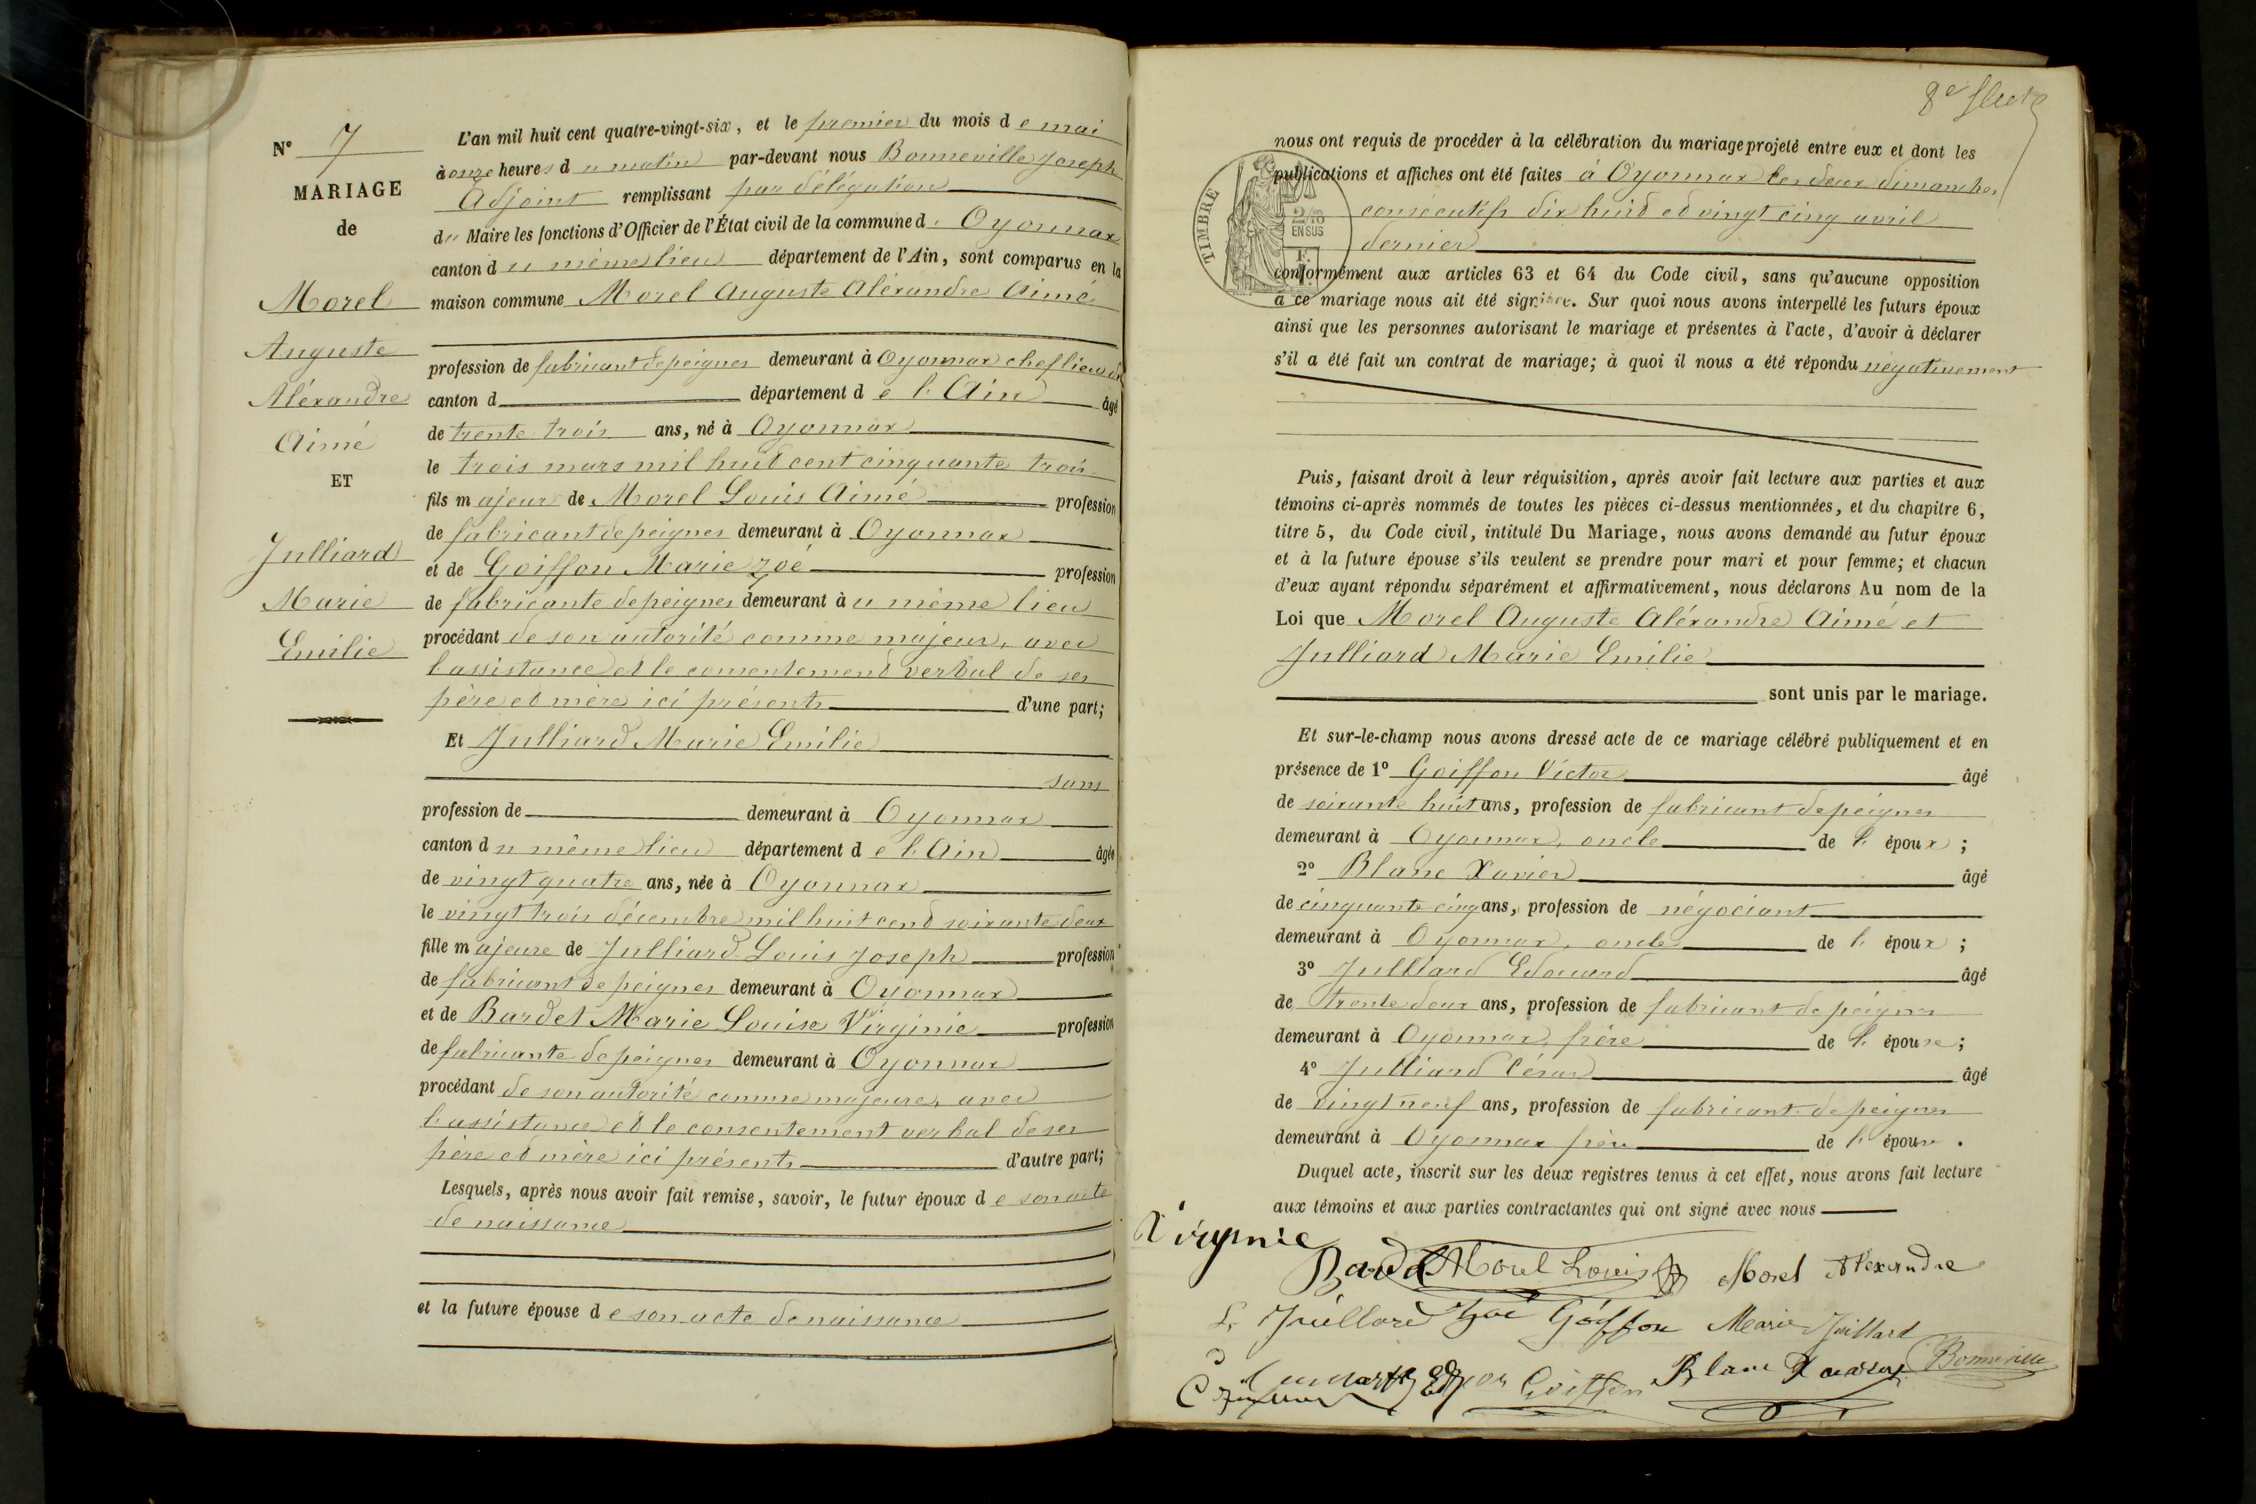 N° 7
MARIAGE
de
Morel
Auguste
Aléxandre
Aimé
ET
Julliard
Marie
Emilie
L'an mil huit cent quatre-vingt-six, et le premier du mois de mai
à onze heures du matin par-devant nous Bonneville Joseph
Adjoint remplissant par délégation
du Maire les fonctions d'Officier de l'État civil de la commune d' Oyonnax
canton du même lieu département de l'Ain, sont comparus en la
maison commune Morel Auguste Aléxandre Aimé
profession de fabricant de peignes demeurant à Oyonnax chef lieu de
canton d département de l'Ain âgé
de trente trois ans, né à Oyonnax
le trois mars mil huit cent cinquante trois
fils majeur de Morel Louis Aimé profession
de fabricant de peignes demeurant à Oyonnax
et de Goiffon Marie Zoé profession
de fabricante de peignes demeurant au même lieu
procédant de son autorité comme majeur, avec
l'assistance et le consentement verbal de ses
père et mère ici présents d'une part;
Et Julliard Marie Emilie
sans
profession de demeurant à Oyonnax
canton du même lieu département de l'Ain âgée
de vingt quatre ans, née à Oyonnax
le vingt trois décembre mil huit cent soixante deux
fille majeure de Julliard Louis Joseph profession
de fabricant de peignes demeurant à Oyonnax
et de Bardet Marie Louise Virginie profession
de fabricante de peignes demeurant à Oyonnax
procédant de son autorité comme majeure, avec
l'assistance et le consentement verbal de ses
père et mère ici présents d'autre part;
Lesquels, après nous avoir fait remise, savoir, le futur époux de son acte
de naissance
et la future épouse de son acte de naissance
8e
nous ont requis de procéder à la célébration du mariage projeté entre eux et dont les
publications et affiches ont été faites à Oyonnax les deux dimanches
consécutifs dix huit et vingt cinq avril
dernier
TIMBRE
2/10
EN SUS
conformément aux articles 63 et 64 du Code civil, sans qu'aucune opposition
à ce mariage nous ait été signifiée. Sur quoi nous avons interpellé les futurs époux
ainsi que les personnes autorisant le mariage et présentes à l'acte, d'avoir à déclarer
s'il a été fait un contrat de mariage; à quoi il nous a été répondu négativement
Puis, faisant droit à leur réquisition, après avoir fait lecture aux parties et aux
témoins ci-après nommés de toutes les pièces ci-dessus mentionnées, et du chapitre 6,
titre 5, du Code civil, intitulé Du Mariage, nous avons demandé au futur époux
et à la future épouse s'ils veulent se prendre pour mari et pour femme; et chacun
d'eux ayant répondu séparément et affirmativement, nous déclarons Au nom de la
Loi que Morel Auguste Aléxandre Aimé et
Julliard Marie Emilie
sont unis par le mariage.
Et sur-le-champ nous avons dressé acte de ce mariage célébré publiquement et en
présence de 1° Goiffon Victor âgé
de soixante huit ans, profession de fabricant de peignes
demeurant à Oyonnax, oncle de l' époux;
2° Blanc Xavier âgé
de cinquante cinq ans, profession de négociant
demeurant à Oyonnax, oncle de l' époux;
3° Julliard Edouard âgé
de trente deux ans, profession de fabricant de peignes
demeurant à Oyonnax, frère de l' épouse;
4° Julliard César âgé
de vingt neuf ans, profession de fabricant de peignes
demeurant à Oyonnax frère de l' épouse.
Duquel acte, inscrit sur les deux registres tenus à cet effet, nous avons fait lecture
aux témoins et aux parties contractantes qui ont signé avec nous
Virginie
Bardet Morel Louis Morel Alexandre
L. Juillard Zoé Goiffon Marie Juillard
Goiffon Blanc Xavier Bonneville